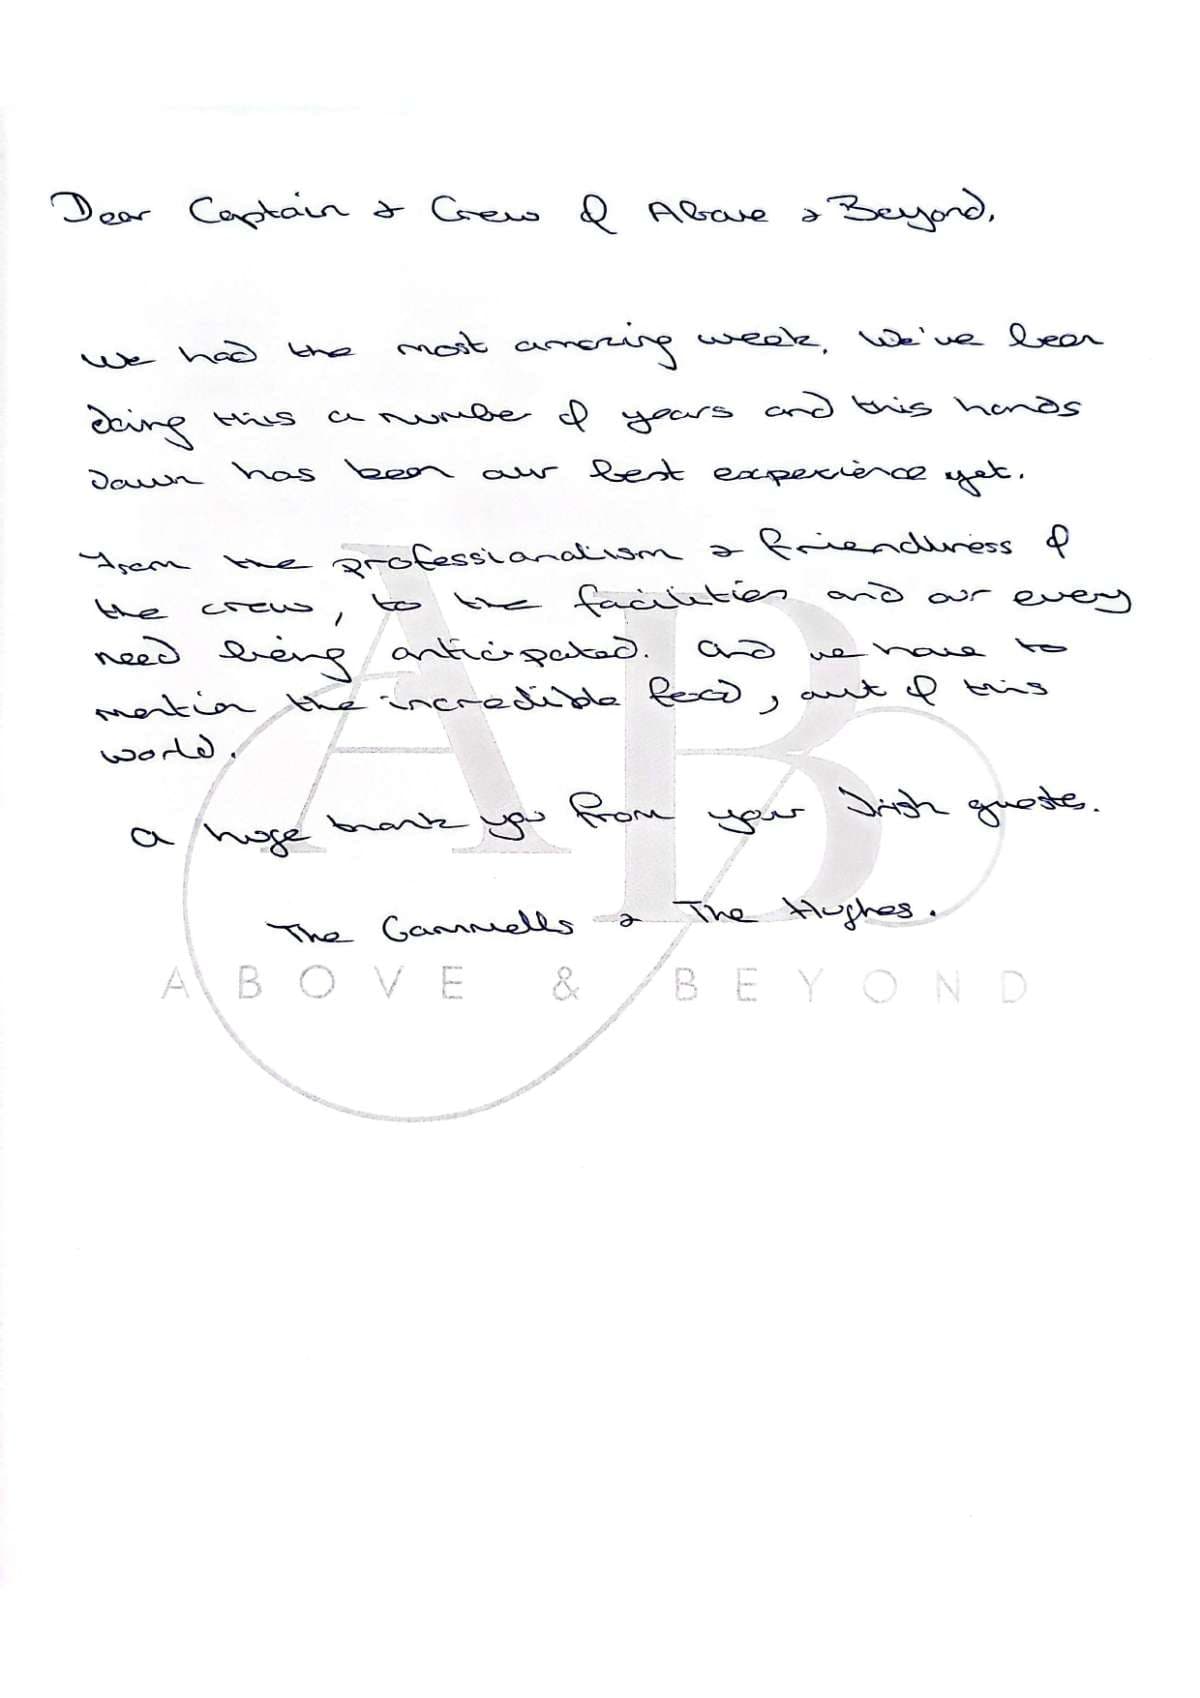 Dear Captain & Crew of Above & Beyond,
We had the most amazing week. We've been
doing this a number of years and this hands
down has been our best experience yet.
From the professionalism & friendliness of
the crew, to the facilities and our every
need being anticipated. And we have to
mention the incredible food, out of this
world.
A huge thank you from your Irish guests.
The & The Hughes.
AB
ABOVE & BEYOND